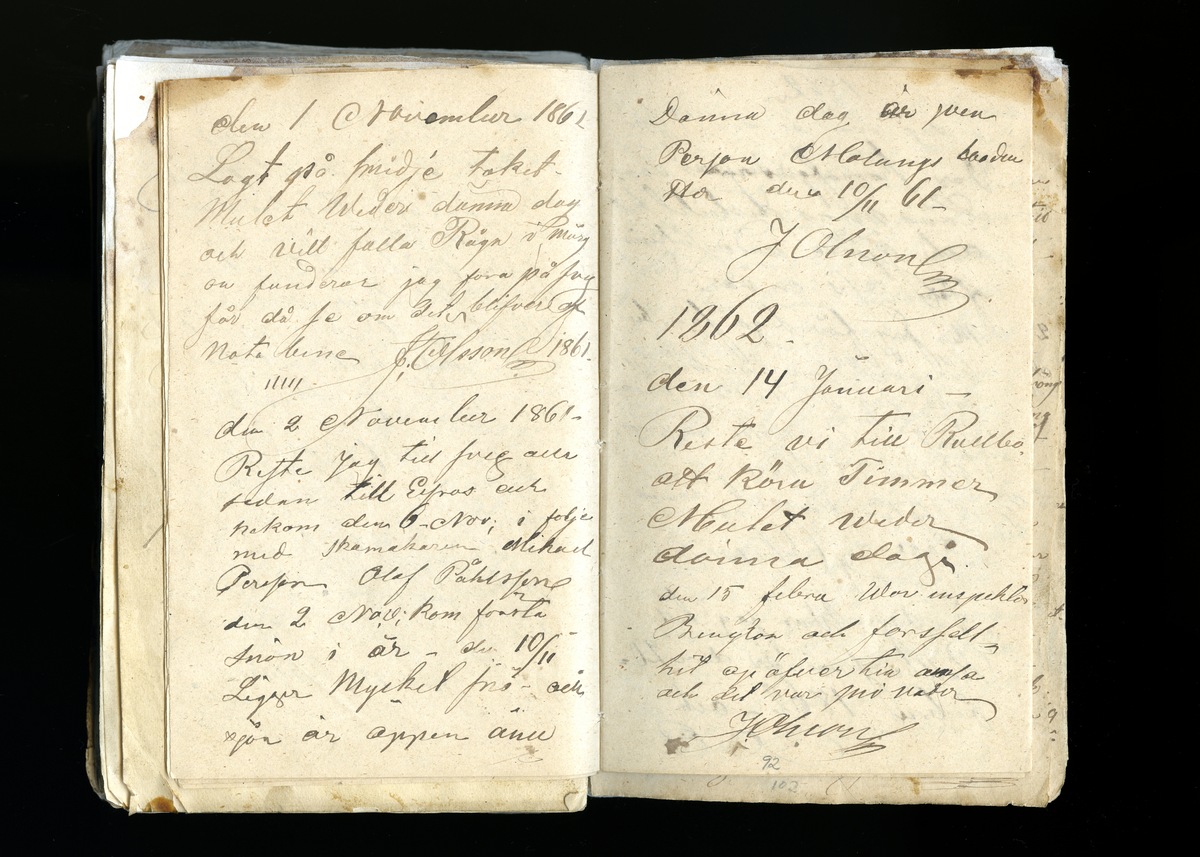 den 1 November 1861
Lagt på smidje taket
Mulet Weder dänna dag
och vill falla Rägn i mårg
on funderar jag fara på
får då se om det blifver af
Nota bene J. Olsson 1861
den 2 November 1861
Reste Jag till sveg och
sedan till Ytros och
hekom den 6 Nov; i följe
med skomakaren Mikael
Person Olof Påhlsson
den 2 Nov; kom första
snön i år - den 10/11
Ligger Mycket snö - och
sjön är öppen änu
Dänna dag är sven
Person Malungs
Här den 10/11 61
J Olsson
1862
den 14 Januari
Reste vi till Rullbo
att köra Timmer
Mulet weder
dänna dag.
den 15 febru War inspektor
Bengton och forsfelt
hit
och det var
J Olsson
92
102